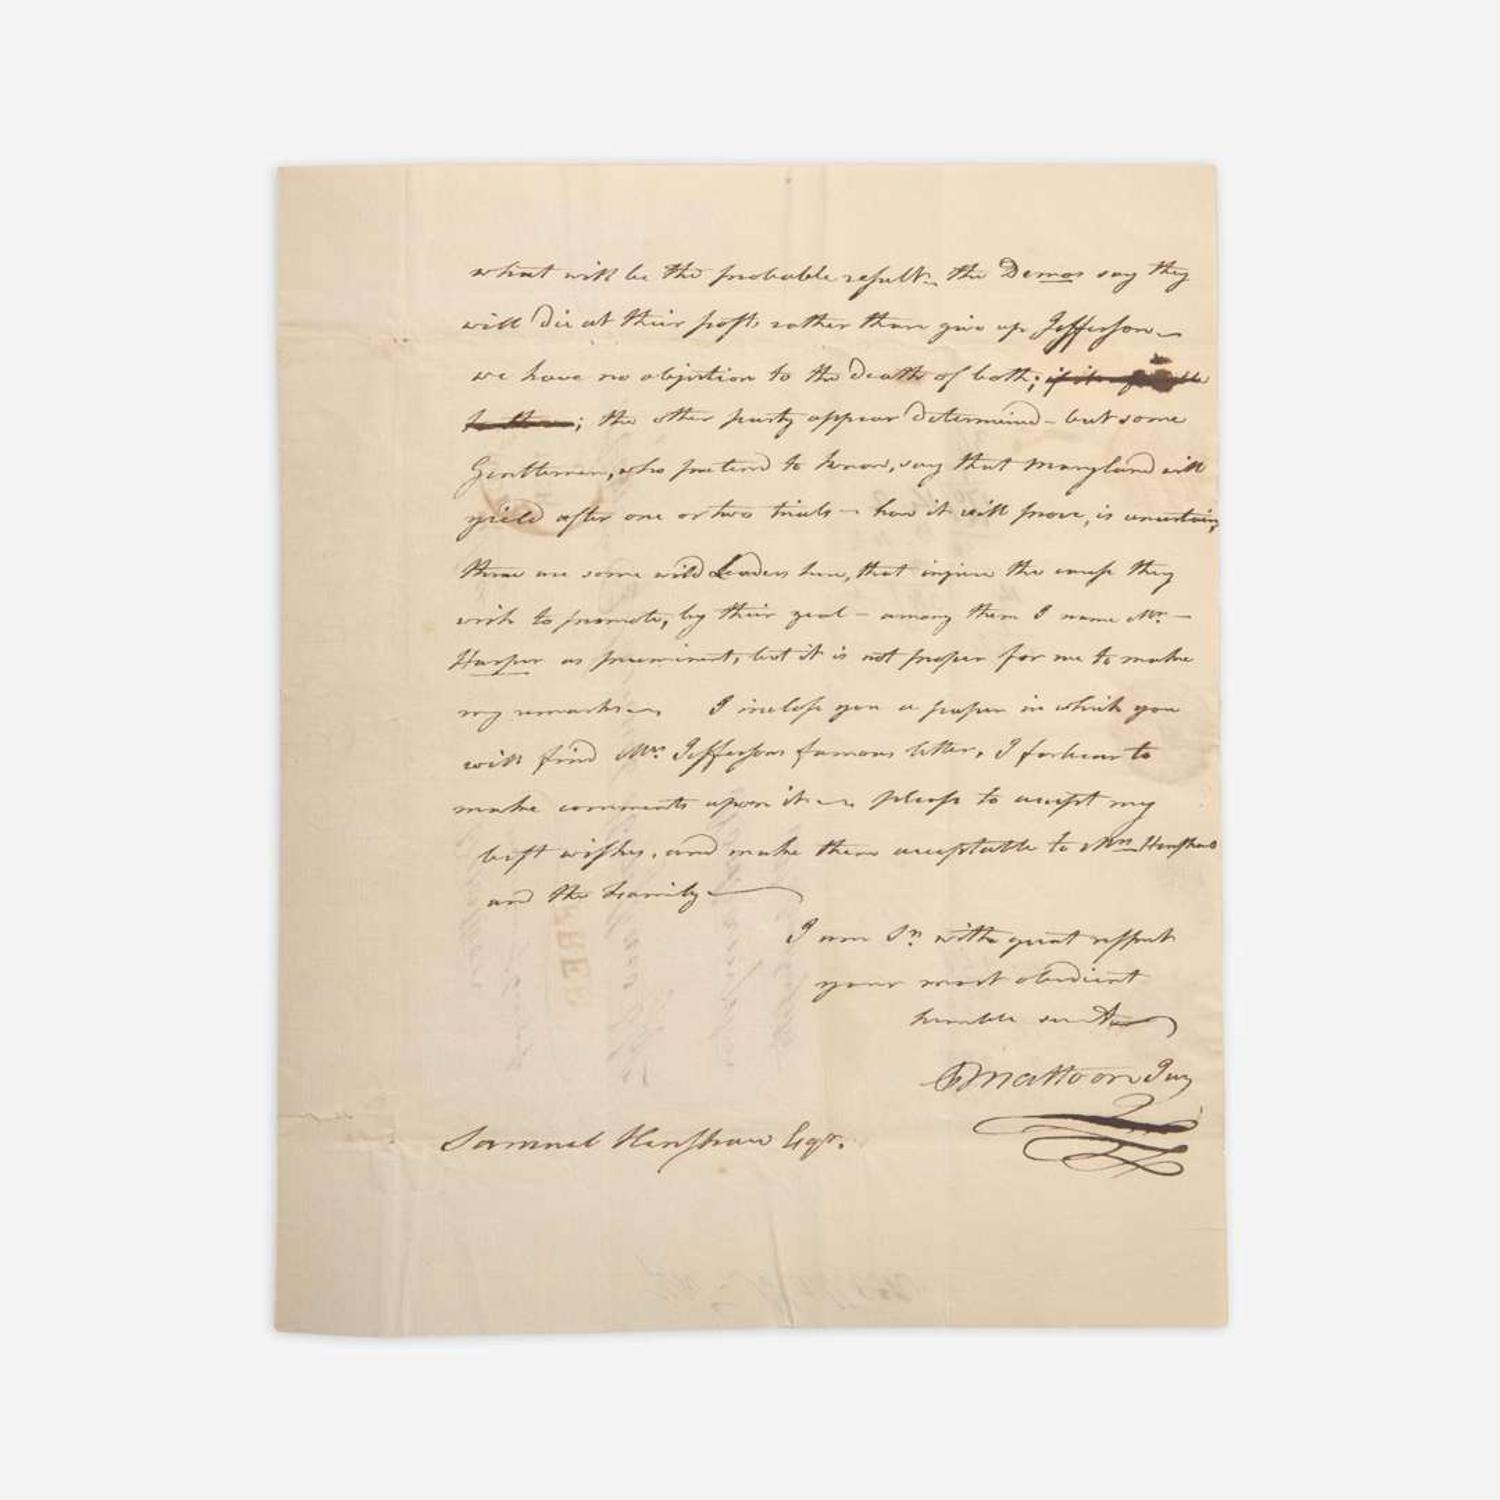 what will be the probable result. the Demos say they
will die at their posts rather than give up Jefferson —
we have no objection to the death of both; if it
; the other party appear determined - but some
Gentlemen, who pretend to know, say that Maryland will
yield after one or two trials — how it will prove, is uncertain,
there are some wild Leaders here, that injure the cause they
wish to promote, by their zeal - among them I name Mr. —
Harper as preeminent, but it is not proper for me to make
my remarks — I inclose you a paper in which you
will find Mr. Jeffersons famous letter, I forbear to
make comments upon it — please to accept my
best wishes, and make them acceptable to Mrs. Henshaw
and the Family —
I am Sr. with great respect
your most obedient
humble servt
E Mattoon Jun
Samuel Henshaw Esqr.
FREE